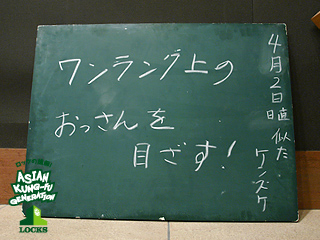 ワンラング上の
おっさんを
目ざす!
4月2日 日直 似た
ケンスケ
ASIAN
KUNG-FU
GENERATION
LOCKS